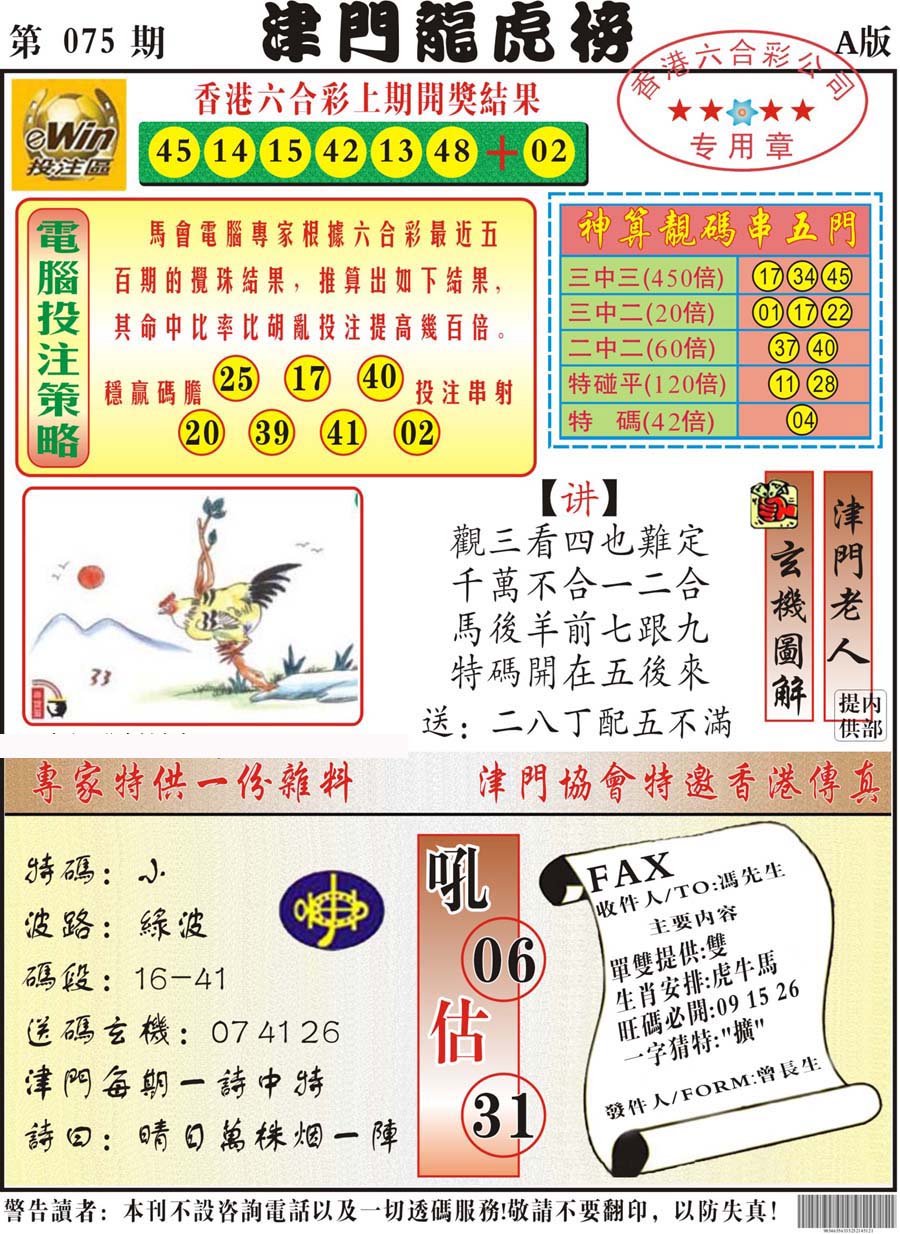 第 075 期
津門龍虎榜
A版
香港六合彩公司
★★★★
专用章
eWin
投注區
香港六合彩上期開獎結果
45 14 15 42 13 48 + 02
電腦投注策略
馬會電腦專家根據六合彩最近五
百期的攪珠結果，推算出如下結果，
其命中比率比胡亂投注提高幾百倍。
穩贏碼膽 25 17 40 投注串射
20 39 41 02
神算靚碼串五門
三中三(450倍) 17 34 45
三中二(20倍) 01 17 22
二中二(60倍) 37 40
特碰平(120倍) 11 28
特 碼(42倍) 04
33
【讲】
觀三看四也難定
千萬不合一二合
馬後羊前七跟九
特碼開在五後來
送：二八丁配五不滿
玄機圖解
津門老人
提供
内部
專家特供一份雜料
津門協會特邀香港傳真
特碼：小
波路：綠波
碼段：16-41
送碼玄機：07 41 26
津門每期一詩中特
詩曰：晴日萬株烟一陣
吼
06
估
31
FAX
收件人/TO:馮先生
主要内容
單雙提供:雙
生肖安排:虎牛馬
旺碼必開:09 15 26
一字猜特:"擴"
發件人/FORM:曾長生
警告讀者：本刊不設咨詢電話以及一切透碼服務!敬請不要翻印，以防失真!